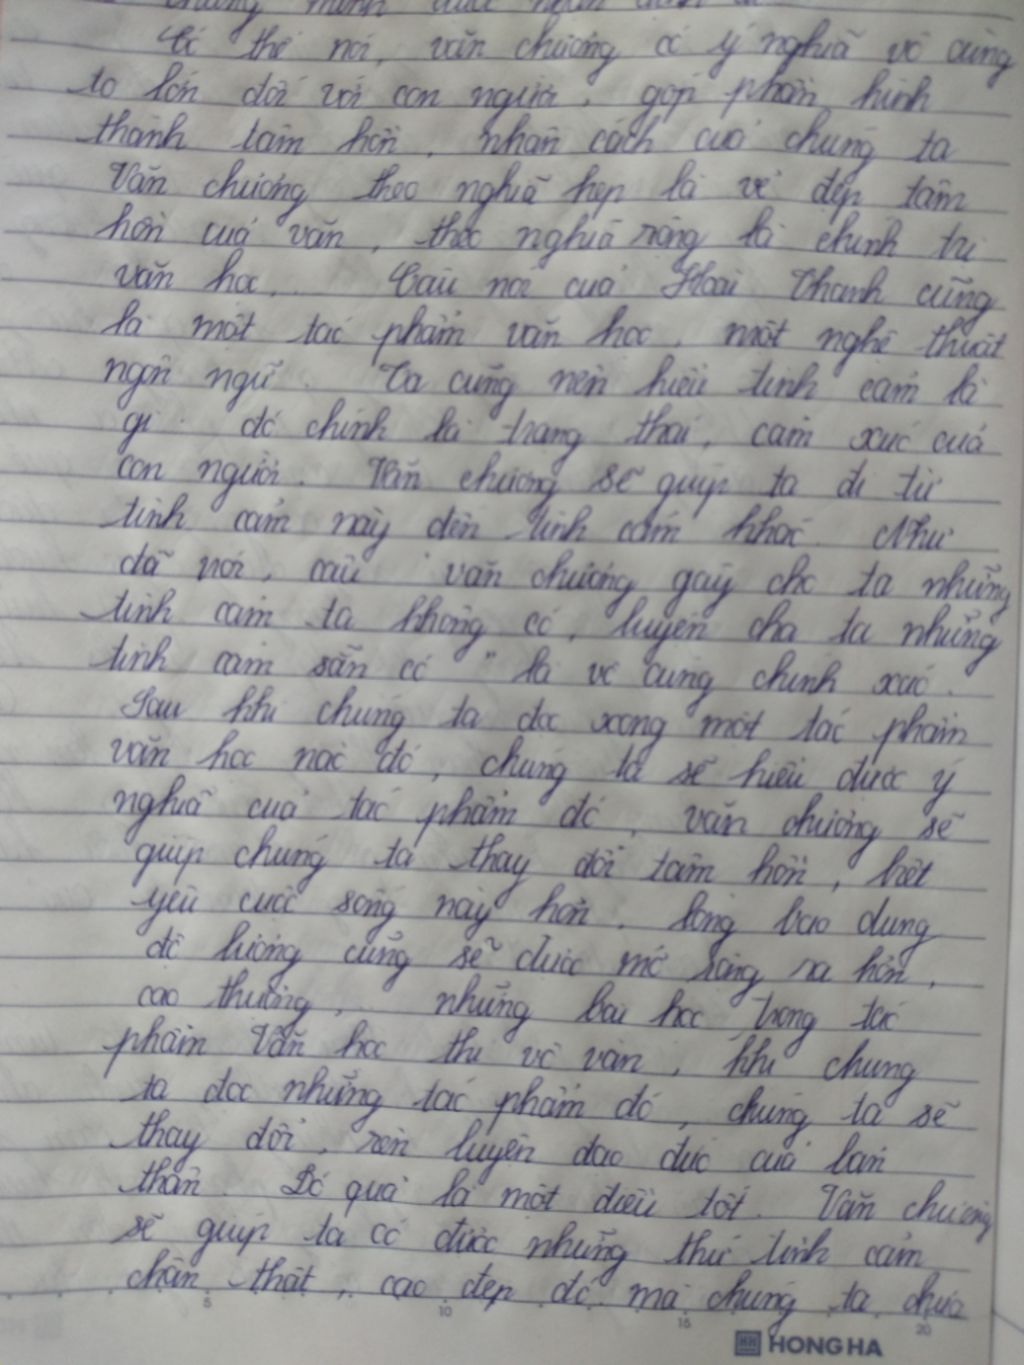 chứng minh
Có thể nói, văn chương có ý nghĩa vô cùng
to lớn đối với con người, góp phần hình
thành tâm hồn, nhân cách của chúng ta
Văn chương theo nghĩa hẹp là vẻ đẹp tâm
hồn của văn, theo nghĩa rộng là chính trị
văn học. Câu nói của Hoài Thanh cũng
là một tác phẩm văn học, một nghệ thuật
ngôn ngữ. Ta cũng nên hiểu tình cảm là
gì đó chính là trạng thái, cảm xúc của
con người. Văn chương sẽ giúp ta đi từ
tình cảm này đến tình cảm khác. Như
đã nói, câu "văn chương gây cho ta những
tình cảm ta không có, luyện cho ta những
tình cảm sẵn có" là vô cùng chính xác.
Sau khi chúng ta đọc xong một tác phẩm
văn học nào đó, chúng ta sẽ hiểu được ý
nghĩa của tác phẩm đó, văn chương sẽ
giúp chúng ta thay đổi tâm hồn, biết
yêu cuộc sống này hơn. lòng bao dung
độ lượng cũng sẽ được mở rộng ra hơn,
cao thượng, những bài học trong tác
phẩm Văn học thì vô vàn, khi chúng
ta đọc những tác phẩm đó, chúng ta sẽ
thay đổi, rèn luyện đạo đức của bản
thân. Đó quả là một điều tốt. Văn chương
sẽ giúp ta có được những thứ tình cảm
chân thật, cao đẹp đó mà chúng ta chưa
5 10 15 20
HH HONG HA